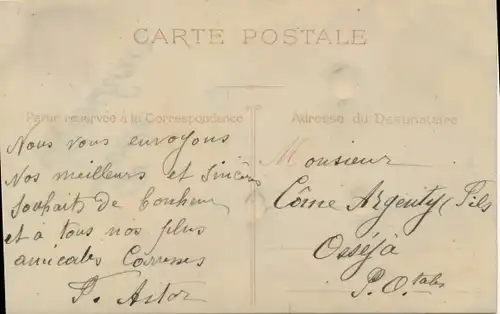 CARTE POSTALE
Partie réservée à la Correspondance
Adresse du Destinataire
Nous vous envoyons
Nos meilleurs et sincères
souhaits de bonheur
et à tous nos plus
amicales Caresses
Monsieur
Côme Argenty Fils
Osséja
P. O.tales